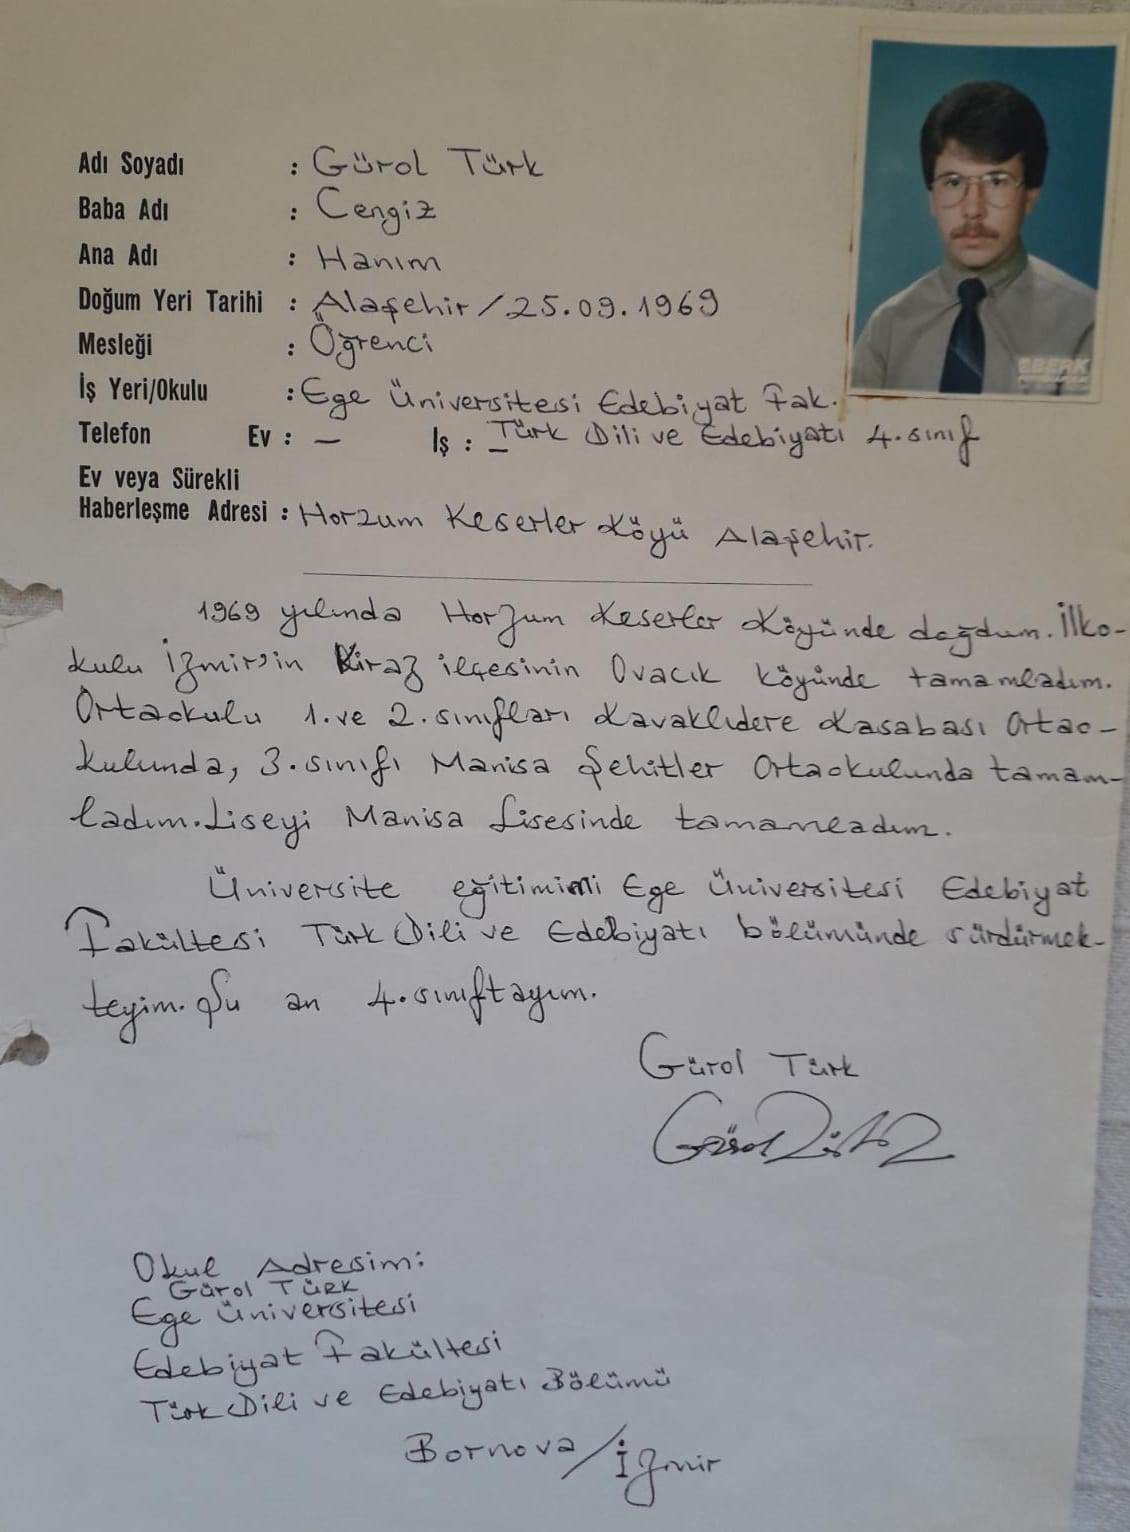 Adı Soyadı : Gürol Türk
Baba Adı : Cengiz
Ana Adı : Hanım
Doğum Yeri Tarihi : Alaşehir / 25.09.1969
Mesleği : Öğrenci
İş Yeri/Okulu : Ege Üniversitesi Edebiyat Fak.
Telefon Ev : — İş : — Türk Dili ve Edebiyatı 4. sınıf
Ev veya Sürekli
Haberleşme Adresi : Horzum Keserler Köyü Alaşehir.
1969 yılında Horzum Keserler Köyünde doğdum. İlko-
kulu İzmir'in Kiraz ilçesinin Ovacık köyünde tamamladım.
Ortaokulu 1. ve 2. sınıfları Kavaklıdere Kasabası Ortao-
kulunda, 3. sınıfı Manisa Şehitler Ortaokulunda tamam-
ladım. Liseyi Manisa Lisesinde tamamladım.
Üniversite eğitimimi Ege Üniversitesi Edebiyat
Fakültesi Türk Dili ve Edebiyatı bölümünde sürdürmek-
teyim. Şu an 4. sınıftayım.
Gürol Türk
Okul Adresim:
Gürol TÜRK
Ege Üniversitesi
Edebiyat Fakültesi
Türk Dili ve Edebiyatı Bölümü
Bornova / İzmir